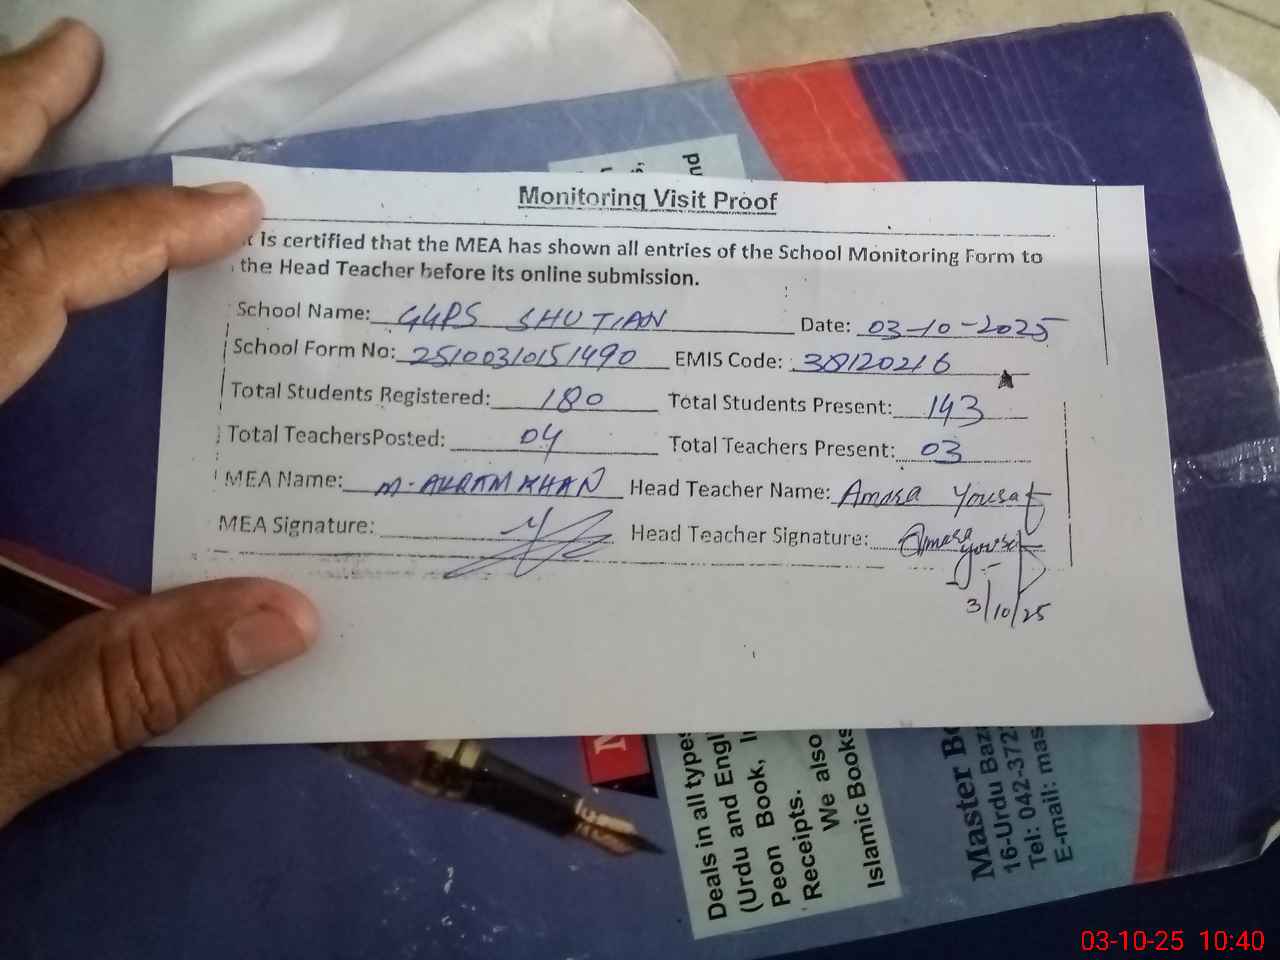 Monitoring Visit Proof
is certified that the MEA has shown all entries of the School Monitoring Form to
the Head Teacher before its online submission.
School Name: GGPS SHUTIAN Date: 03-10-2025
School Form No: 25100310151490 EMIS Code: 38120216
Total Students Registered: 180 Total Students Present: 143
Total TeachersPosted: 04 Total Teachers Present: 03
MEA Name: M. AKRAM KHAN Head Teacher Name: Amara Yousaf
MEA Signature: Head Teacher Signature: Amara Yousaf
3/10/25
Deals in all types
(Urdu and Engl
Peon Book,
Receipts.
We also
Islamic Books
Master B
16-Urdu Baz
Tel: 042-372
E-mail: mas
03-10-25 10:40